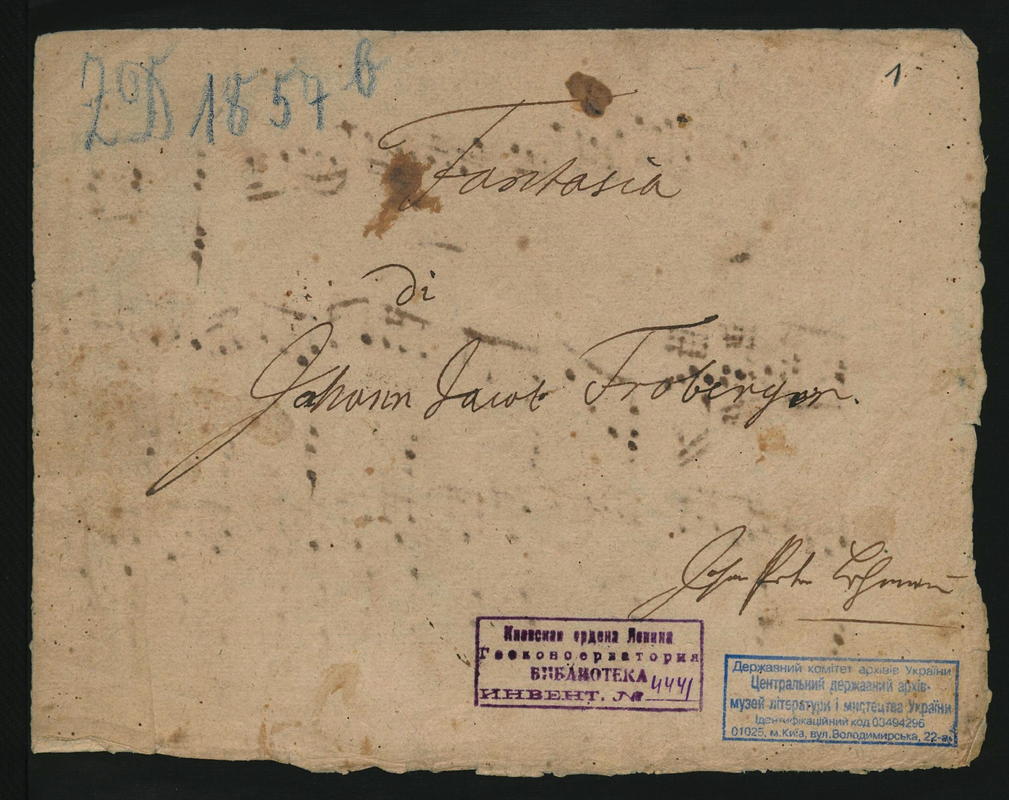 ZD 1857 b
1.
Fantasia
di
Johann Jacob Froberger.
Johann Peter Lehmann
Киевская ордена Ленина
Госконсерватория
БИБЛИОТЕКА
ИНВЕНТ. № 4441
Державний комітет архівів України
Центральний державний архів-
музей літератури і мистецтва України
Ідентифікаційний код 03494296
01025, м.Київ, вул.Володимирська, 22-а